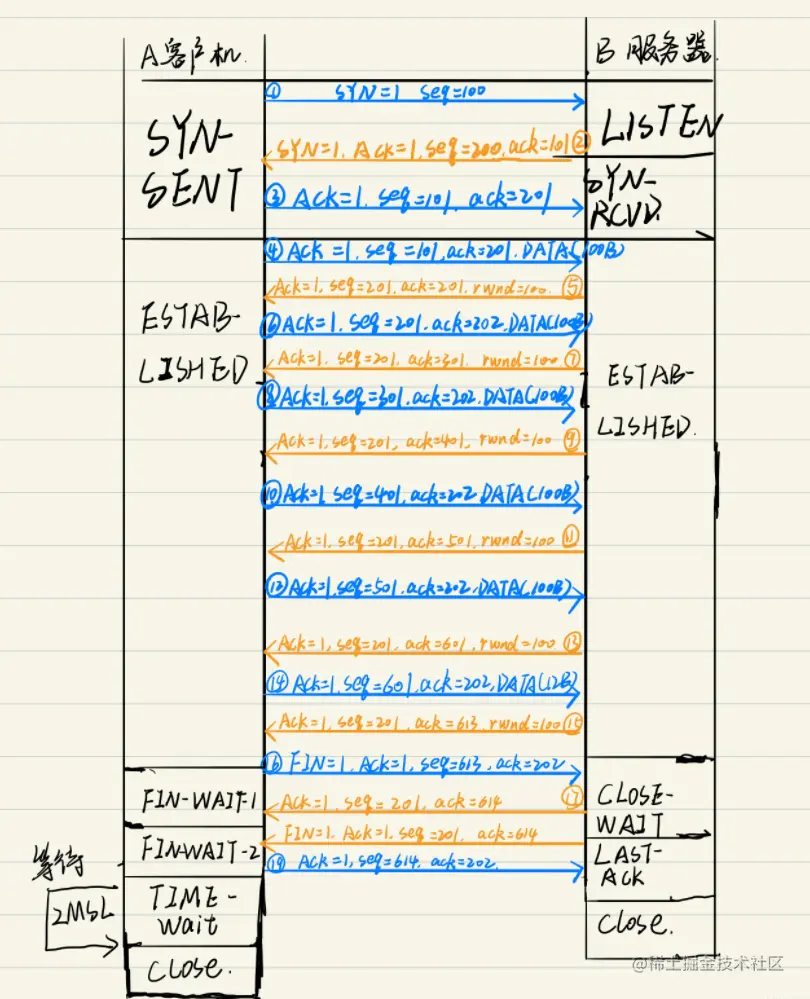 A客户机.
B 服务器
① SYN=1 seq=100
SYN-
SENT
LISTEN
SYN=1. ACK=1, seq=200, ack=101 ②
③ ACK=1. seq=101. ack=201
SYN-
RCVD.
④ ACK=1. seq=101, ack=201. DATA(100B)
Ack=1, seq=201. ack=201, rwnd=100. ⑤
ESTAB-
LISHED
⑥ ACK=1. seq=201. ack=202. DATA(100B)
Ack=1. seq=201. ack=301. rwnd=100 ⑦
⑧ ACK=1. seq=301. ack=202. DATA(100B)
ESTAB-
LISHED.
Ack=1, seq=201, ack=401, rwnd=100 ⑨
⑩ ACK=1, seq=401, ack=202. DATA(100B)
Ack=1. seq=201, ack=501, rwnd=100 ⑪
⑫ ACK=1. seq=501. ack=202. DATA(100B)
Ack=1, seq=201, ack=601, rwnd=100. ⑬
⑭ ACK=1. seq=601, ack=202, DATA(12B)
Ack=1, seq=201, ack=613. rwnd=100 ⑮
⑯ FIN=1. Ack=1, seq=613, ack=202
FIN-WAIT-1
Ack=1. seq=201, ack=614 ⑰
CLOSE-
WAIT
FIN=1. Ack=1. seq=201. ack=614
FINWAIT-2
⑲ Ack=1, seq=614. ack=202.
LAST-
ACK
等待
2MSL
TIME-
Wait
Close.
Close.
@稀土掘金技术社区